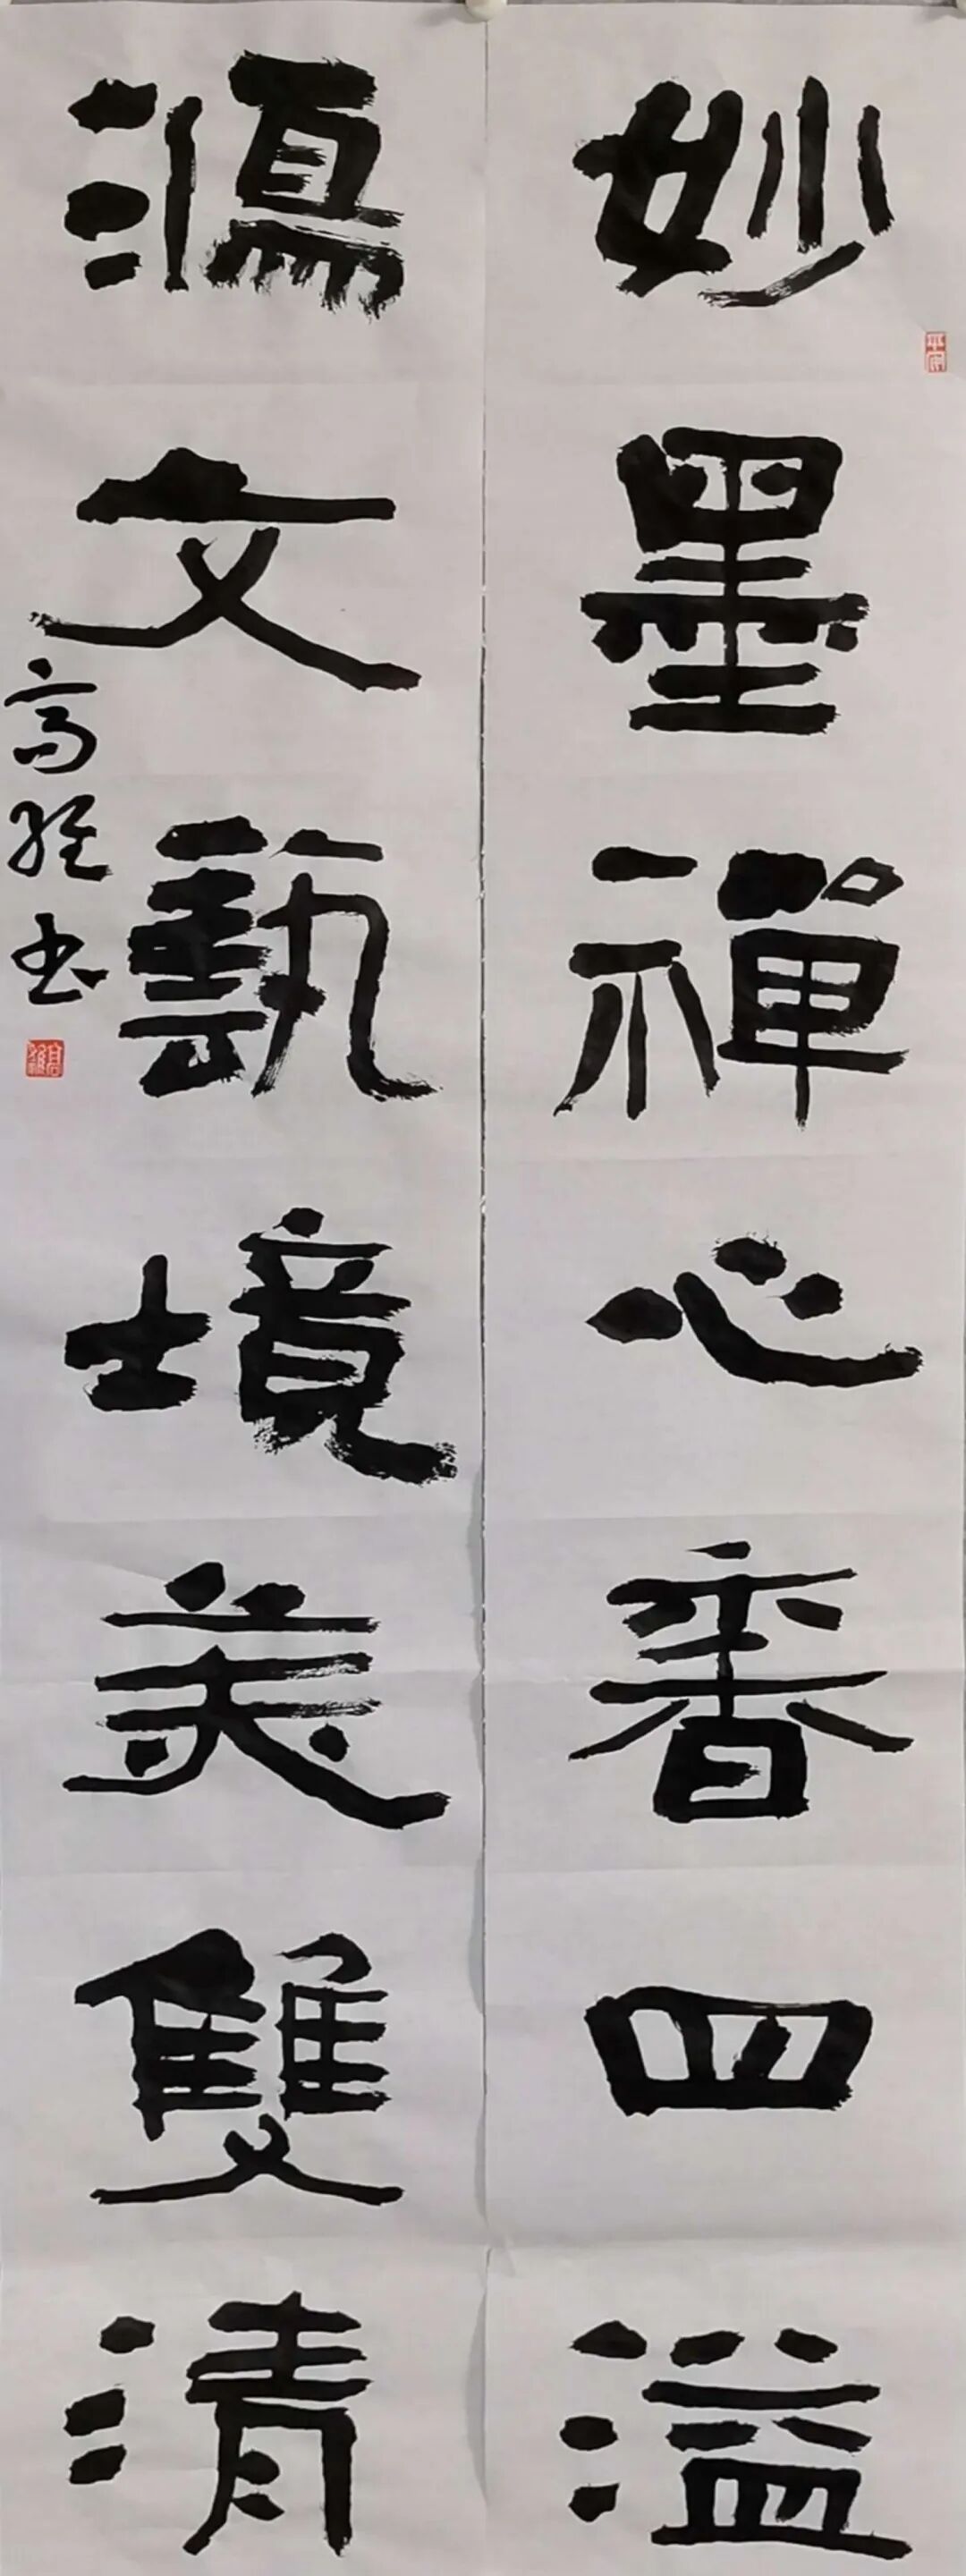 妙墨禪心香四溢
鴻文藝境美雙清
高 书
平安